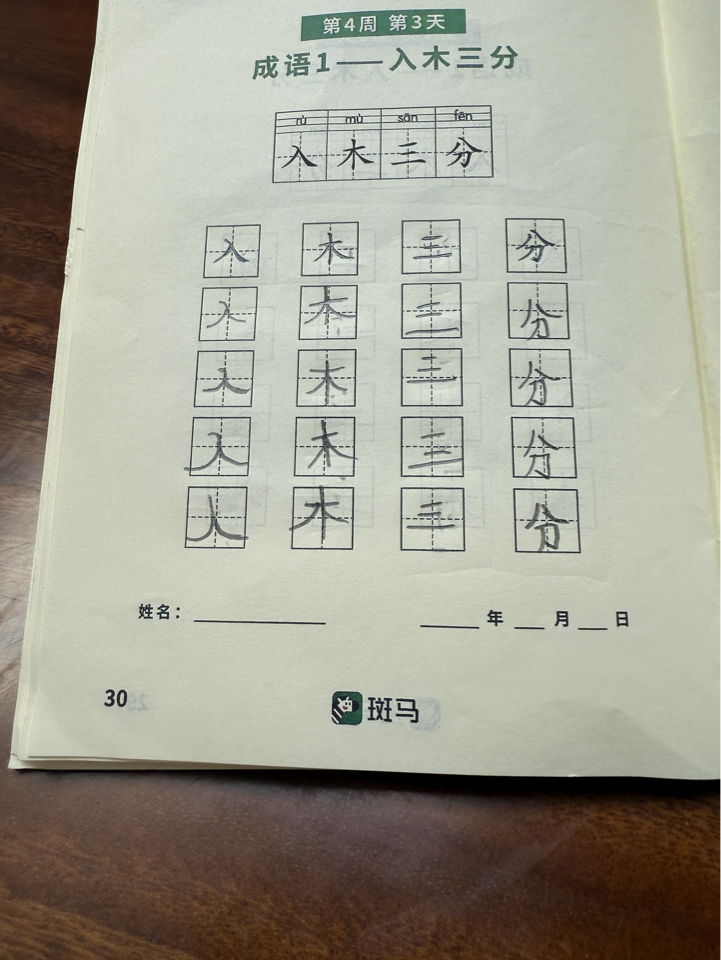 第4周 第3天
成语1——入木三分
rù mù sān fēn
入木三分
入木三分
入木三分
入木三分
入木三分
入木三分
姓名：
年 月 日
30
斑马